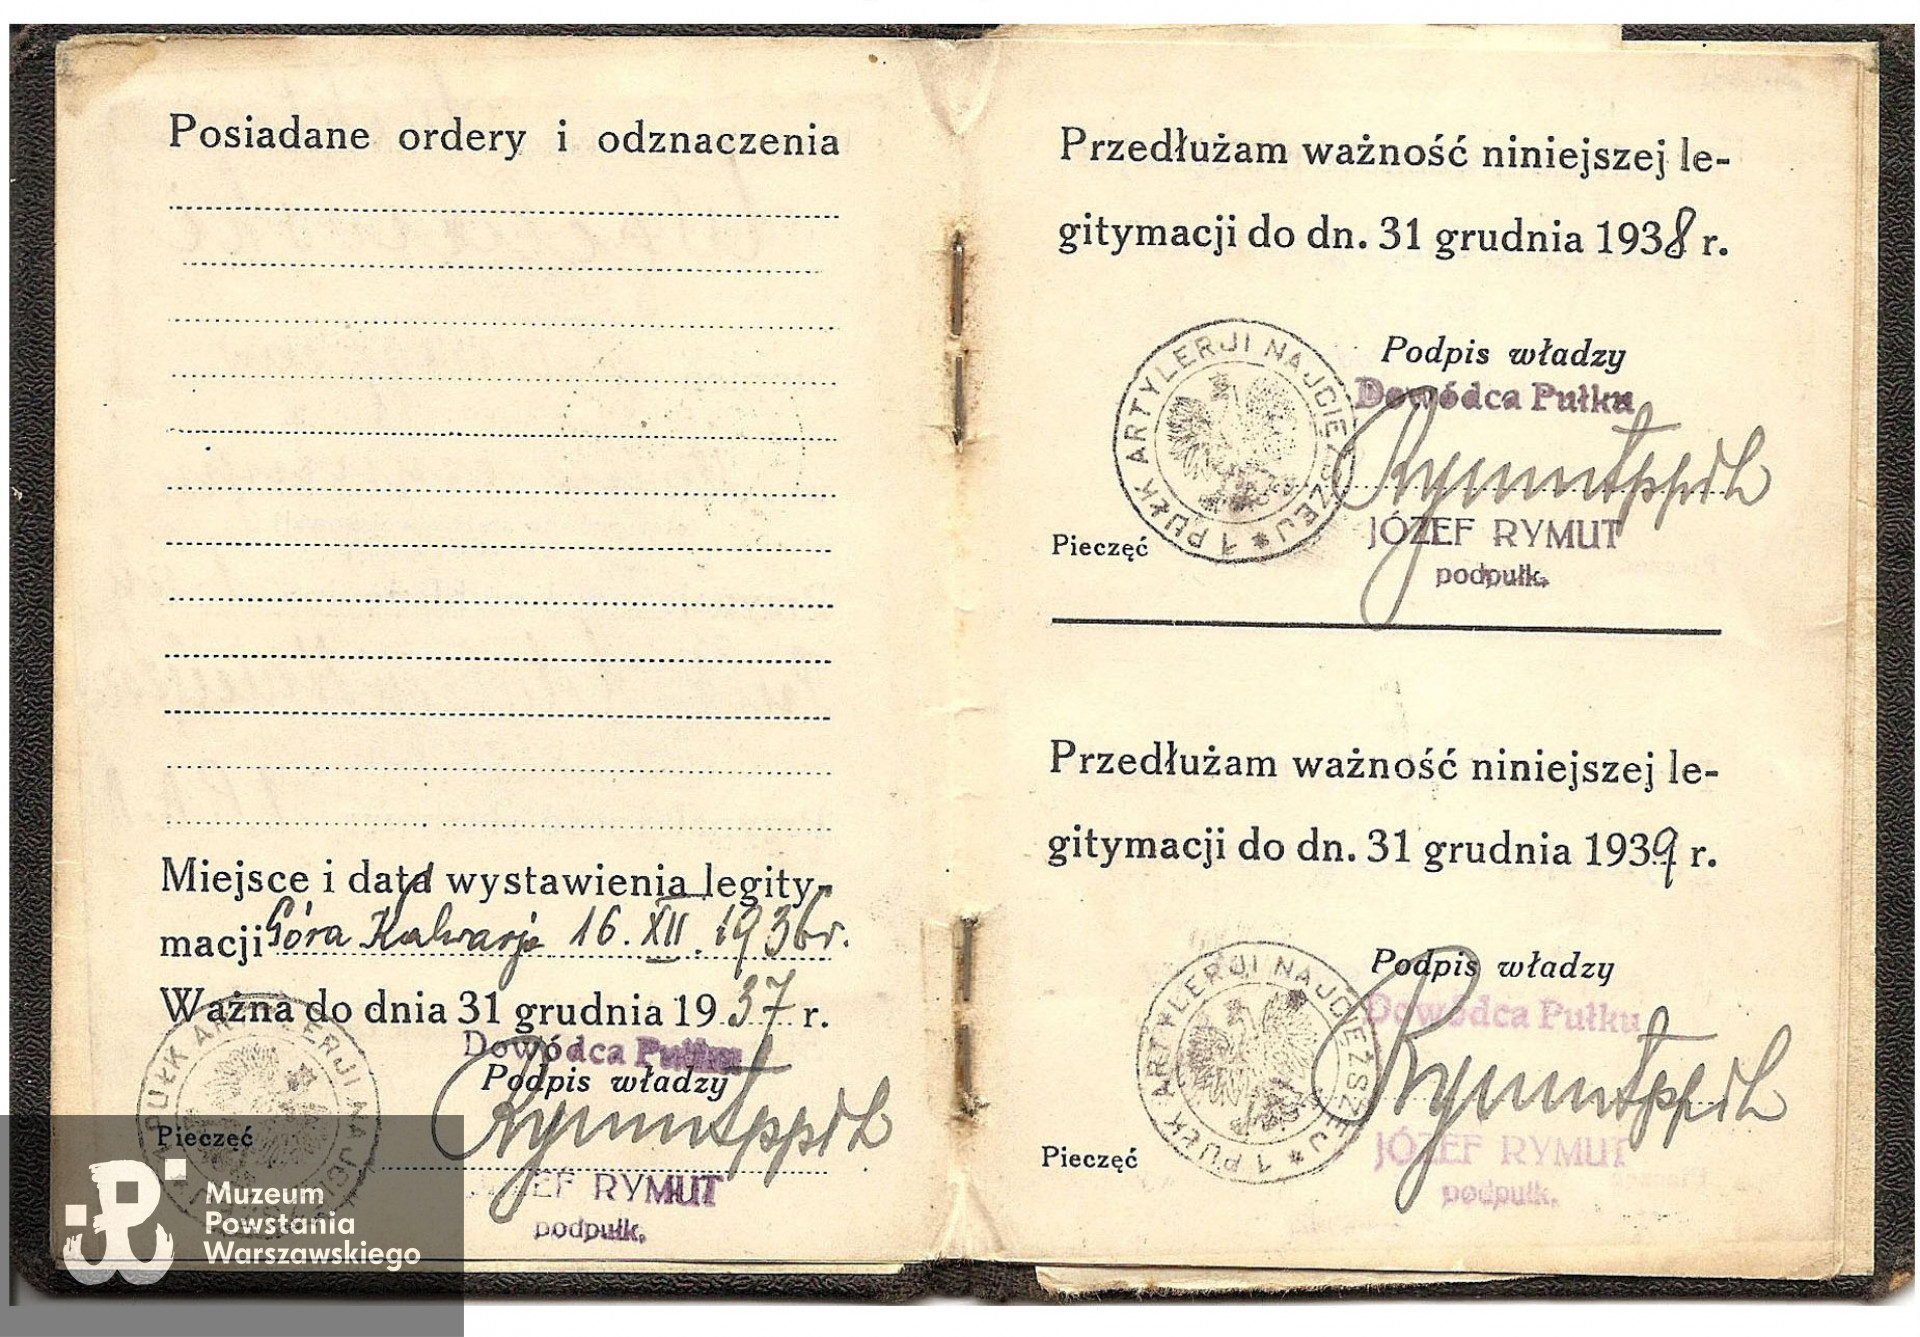 Posiadane ordery i odznaczenia
Miejsce i data wystawienia legity-
macji Góra Kalwarja 16.XII.1936 r.
Ważna do dnia 31 grudnia 1937 r.
Dowódca Pułku
Podpis władzy
Rymut ppłk
Pieczęć
PUŁK ARTYLERJI NAJCIĘ
JÓZEF RYMUT
podpułk.
Muzeum
Powstania
Warszawskiego
Przedłużam ważność niniejszej le-
gitymacji do dn. 31 grudnia 1938 r.
Podpis władzy
Dowódca Pułku
Rymut ppłk
1 PUŁK ARTYLERJI NAJCIĘŻSZEJ *
Pieczęć
JÓZEF RYMUT
podpułk.
Przedłużam ważność niniejszej le-
gitymacji do dn. 31 grudnia 1939 r.
Podpis władzy
Dowódca Pułku
Rymut ppłk
1 PUŁK ARTYLERJI NAJCIĘŻSZEJ *
Pieczęć
JÓZEF RYMUT
podpułk.